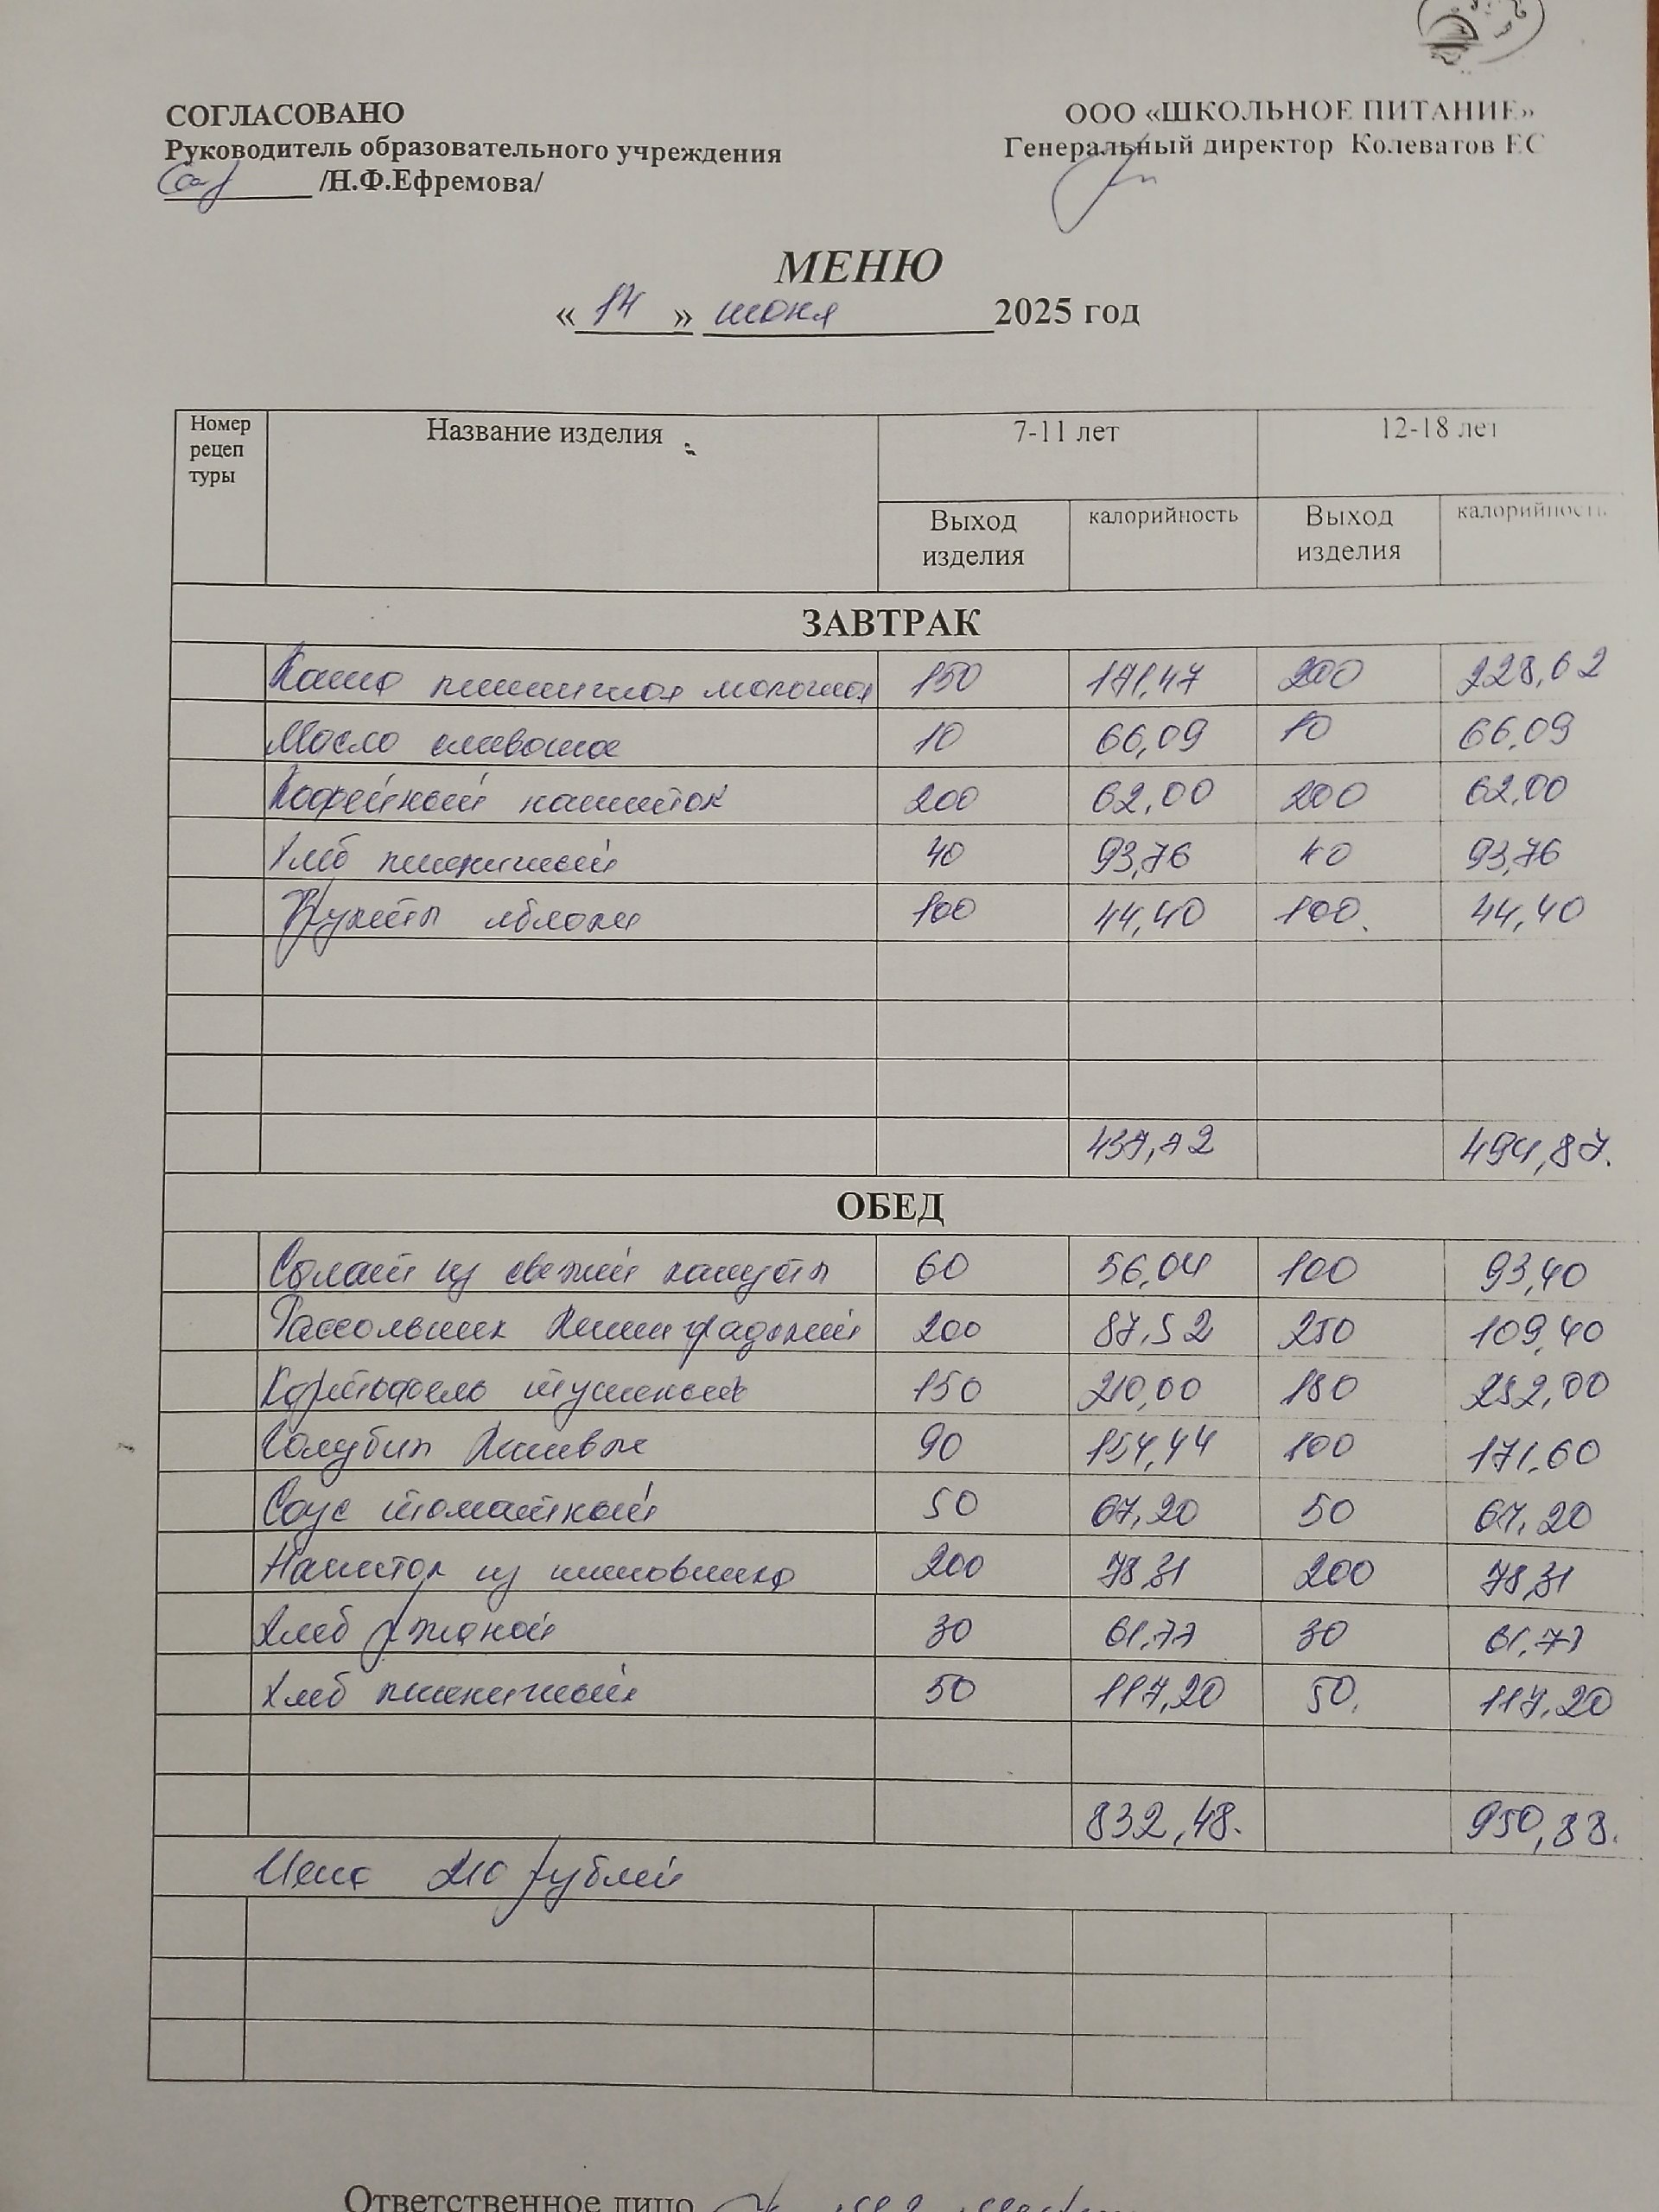 СОГЛАСОВАНО
Руководитель образовательного учреждения
/Н.Ф.Ефремова/
ООО «ШКОЛЬНОЕ ПИТАНИЕ»
Генеральный директор Колеватов ЕС
МЕНЮ
« 17 » июня 2025 год
Номер рецептуры Название изделия 7-11 лет 12-18 лет
Выход изделия калорийность Выход изделия калорийность
ЗАВТРАК
Каша пшеничная молочная 150 171,47 200 228,62
Масло сливочное 10 66,09 10 66,09
Кофейный напиток 200 62,00 200 62,00
Хлеб пшеничный 40 93,76 40 93,76
Фрукты яблоки 100 44,40 100. 44,40
437,72 494,87.
ОБЕД
Салат из свежей капусты 60 56,04 100 93,40
Рассольник Ленинградский 200 87,52 250 109,40
Картофель тушеный 150 210,00 180 252,00
Голубцы Ленивые 90 154,44 100 171,60
Соус томатный 50 67,20 50 67,20
Напиток из шиповника 200 78,31 200 78,31
Хлеб ржаной 30 61,77 30 61,77
Хлеб пшеничный 50 117,20 50. 117,20
832,48. 950,88.
Цена 210 рублей
Ответственное лицо